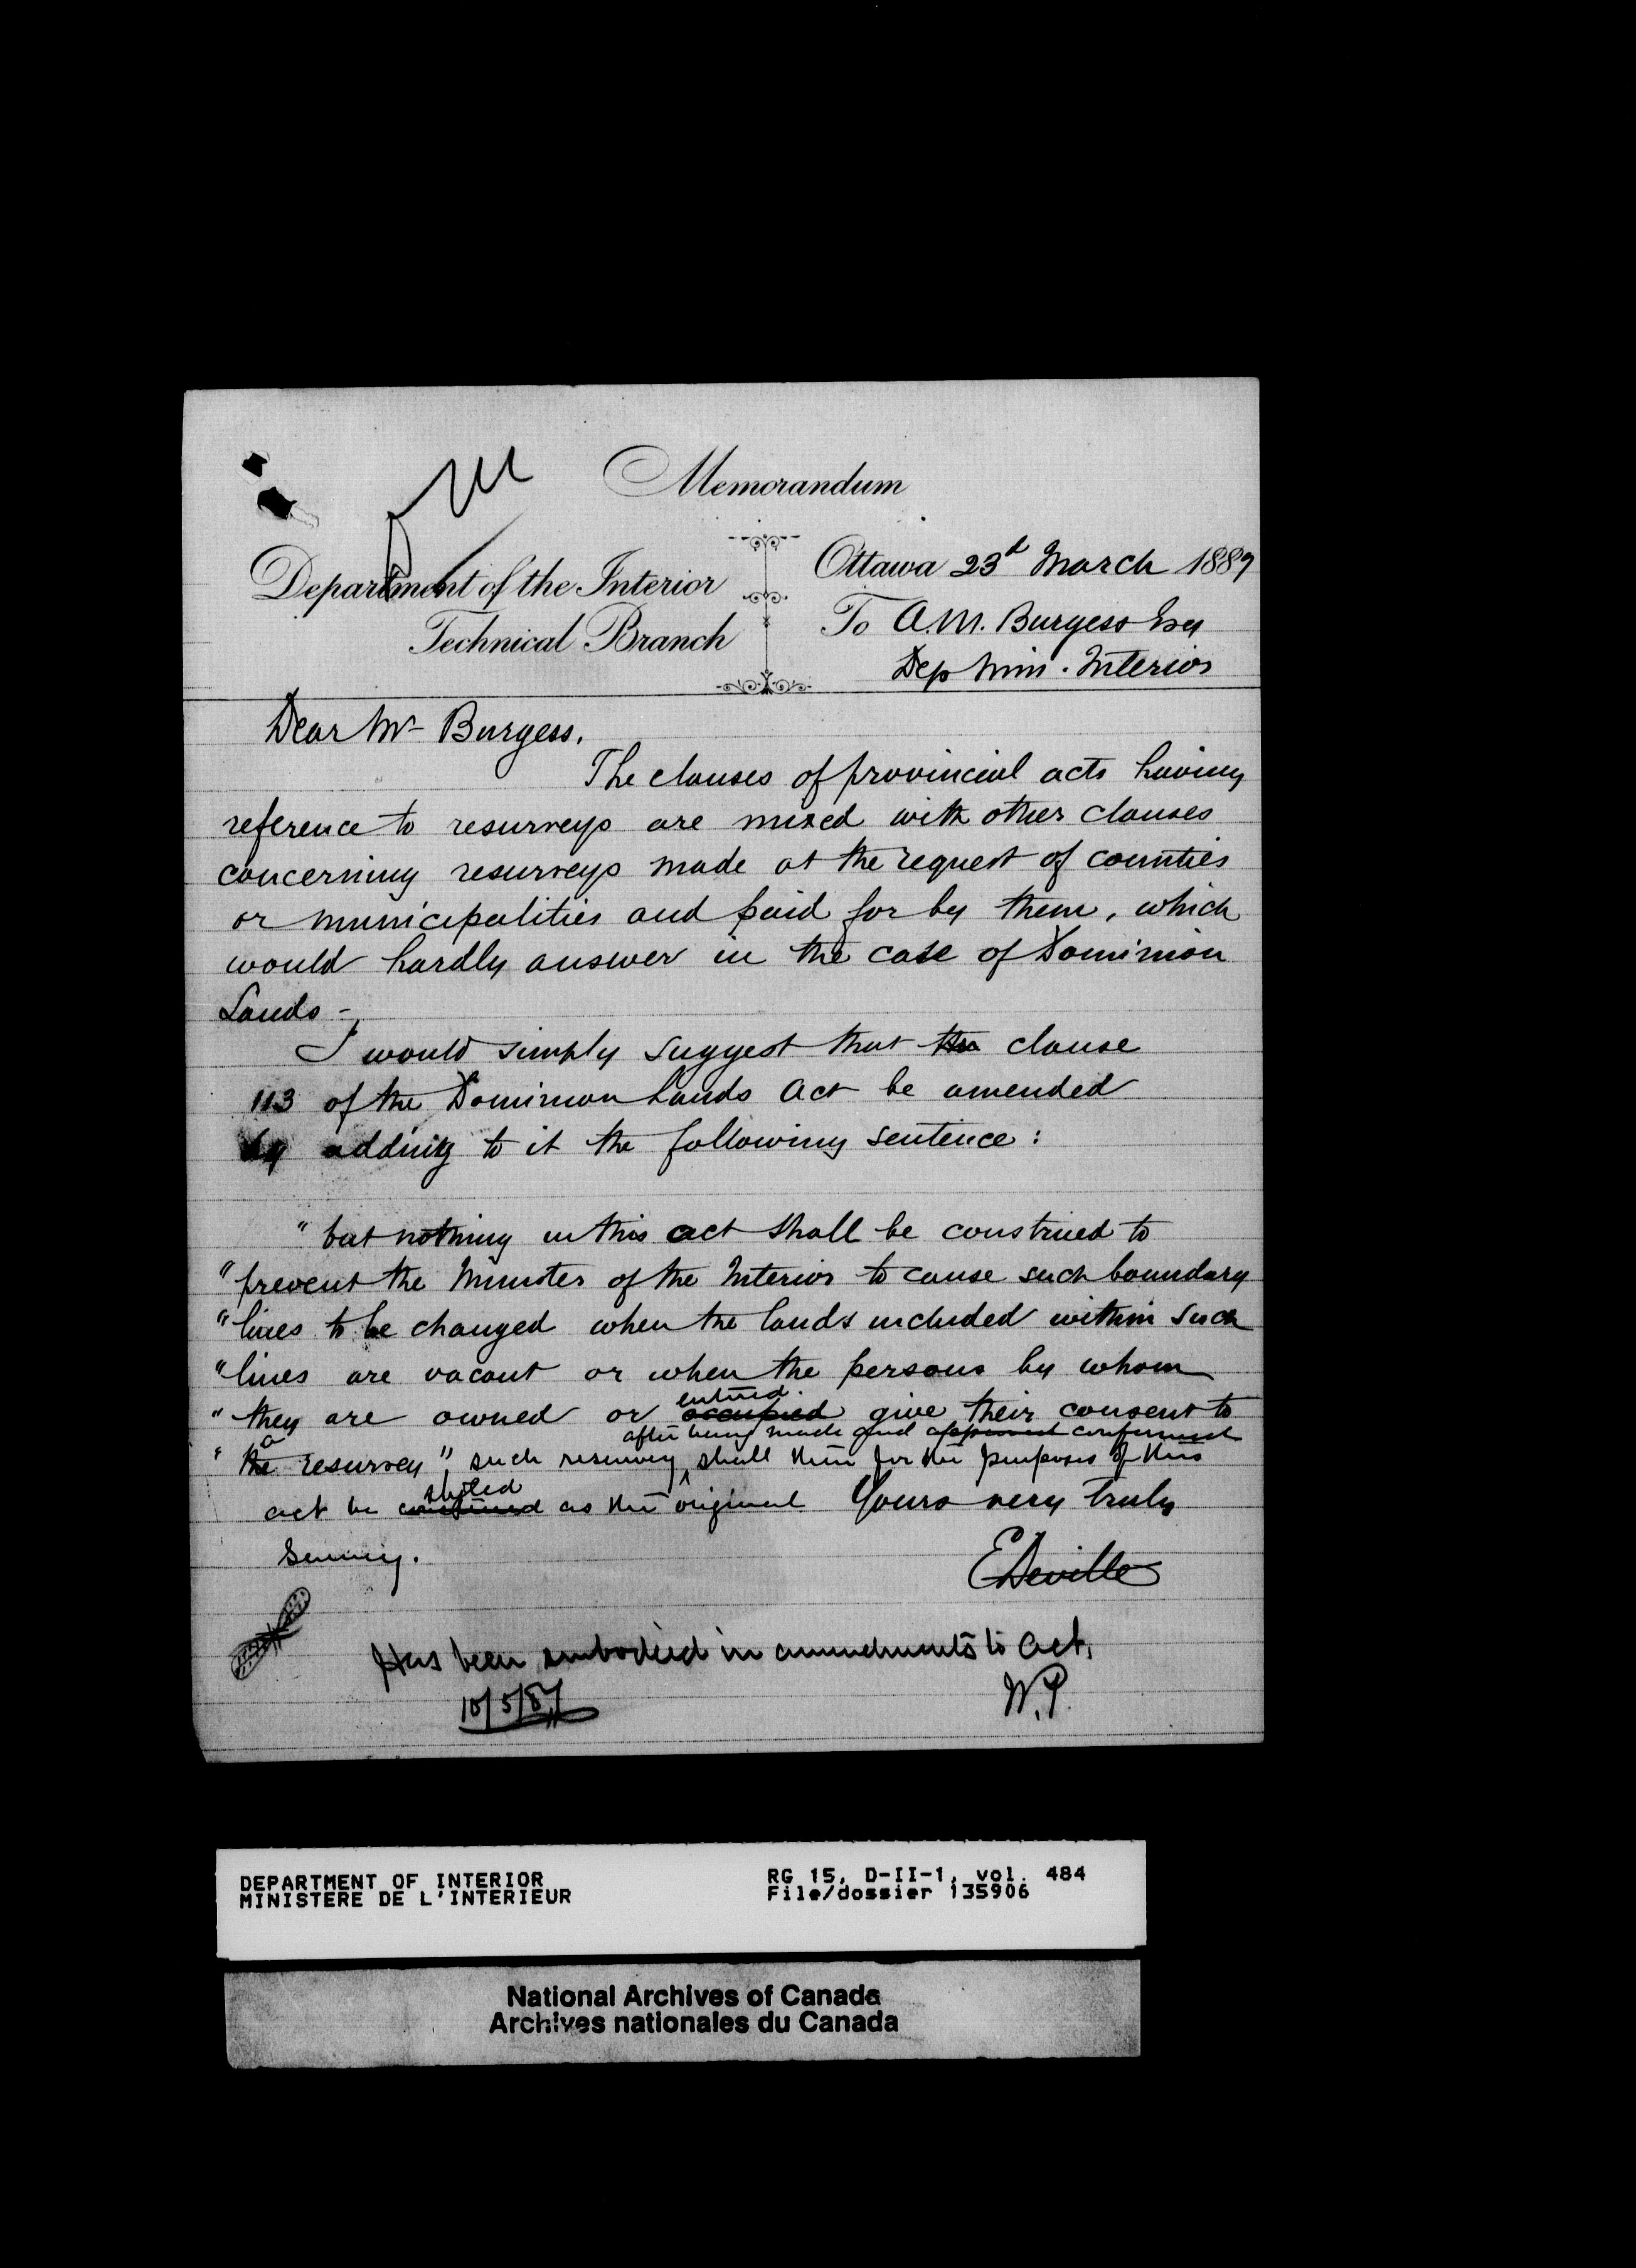 Memorandum
Department of the Interior
Technical Branch
Ottawa 23d March 1887
To A.M. Burgess Esq
Dep Min. Interior
Dear Mr Burgess.
The clauses of provincial acts having
reference to resurveys are mixed with other clauses
concerning resurveys made at the request of counties
or municipalities and paid for by them, which
would hardly answer in the case of Dominion
Lands -
I would simply suggest that the clause
113 of the Dominion Lands Act be amended
by adding to it the following sentence:
"but nothing in this act shall be construed to
"prevent the Minister of the Interior to cause such boundary
"lines to be changed when the lands included within such
"lines are vacant or when the persons by whom
entered.
"they are owned or occupied give their consent to
after being made and approved confirmed
a
"the resurvey", such resurvey shall then for the purposes of this
act be as the original Yours very truly
Survey.
E Deville
Has been embodied in amendments to Act.
W.P.
10/5/87
DEPARTMENT OF INTERIOR
MINISTERE DE L'INTERIEUR
RG 15, D-II-1, vol. 484
File/dossier 135906
National Archives of Canada
Archives nationales du Canada